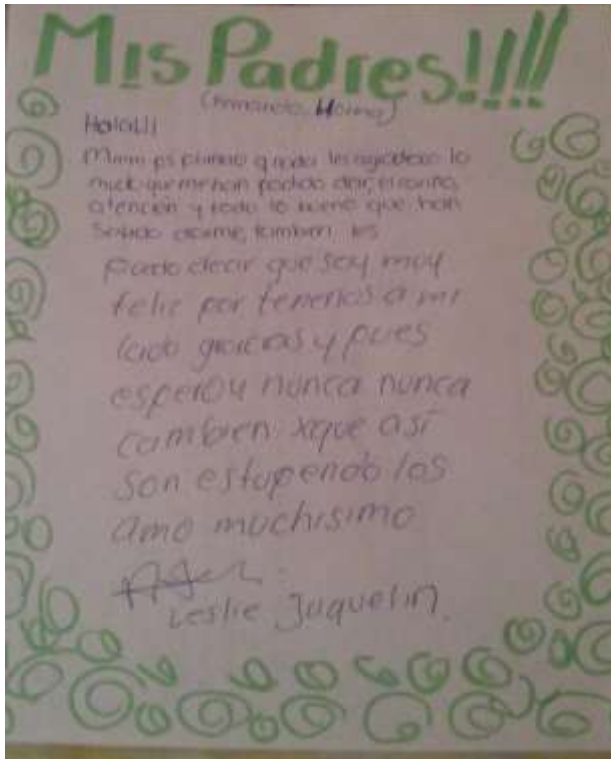 Mis Padres!!!!
(Armando, Horma)
Hola!!!
Mmm ps primero q nada les agradezco lo
much que me han podido dar, el cariño,
atención y todo lo bueno que han
Sabido darme, tambien les
puedo decir que soy muy
feliz por tenerlos a mi
lado gracias y pues
espero y nunca nunca
cambien xque así
son estupendo los
amo muchisimo
Leslie Jaquelin.